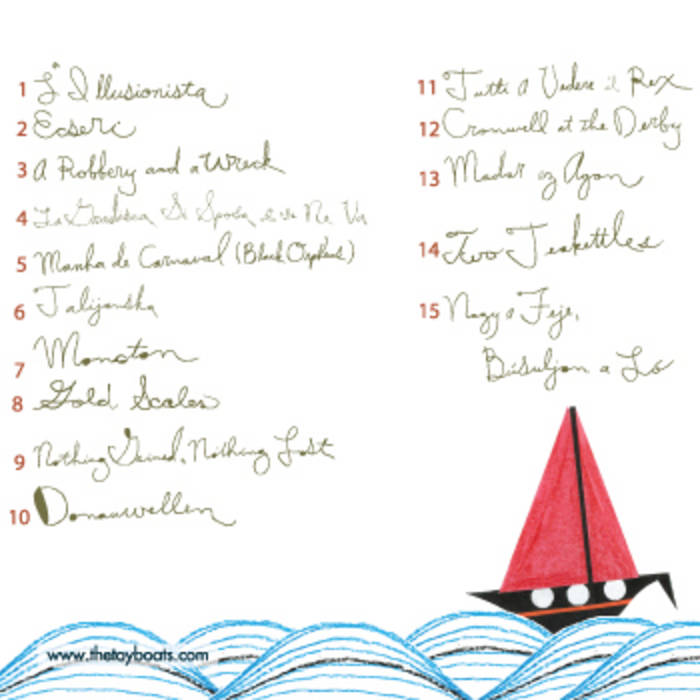 1 L'Illusionista
2 Ecseri
3 A Robbery and a Wreck
4 La Si Sposa e se Ne Va
5 Manha de Carnaval (Black Orpheus)
6 Talijanska
7 Monoton
8 Gold Scales
9 Nothing Gained, Nothing Lost
10 Donauwellen
11 Tutti a Vedere il Rex
12 Cromwell at the Derby
13 Madar az Agon
14 Two Teakettles
15 Nagy a Feje,
Búsuljon a Ló
www.thetoyboats.com